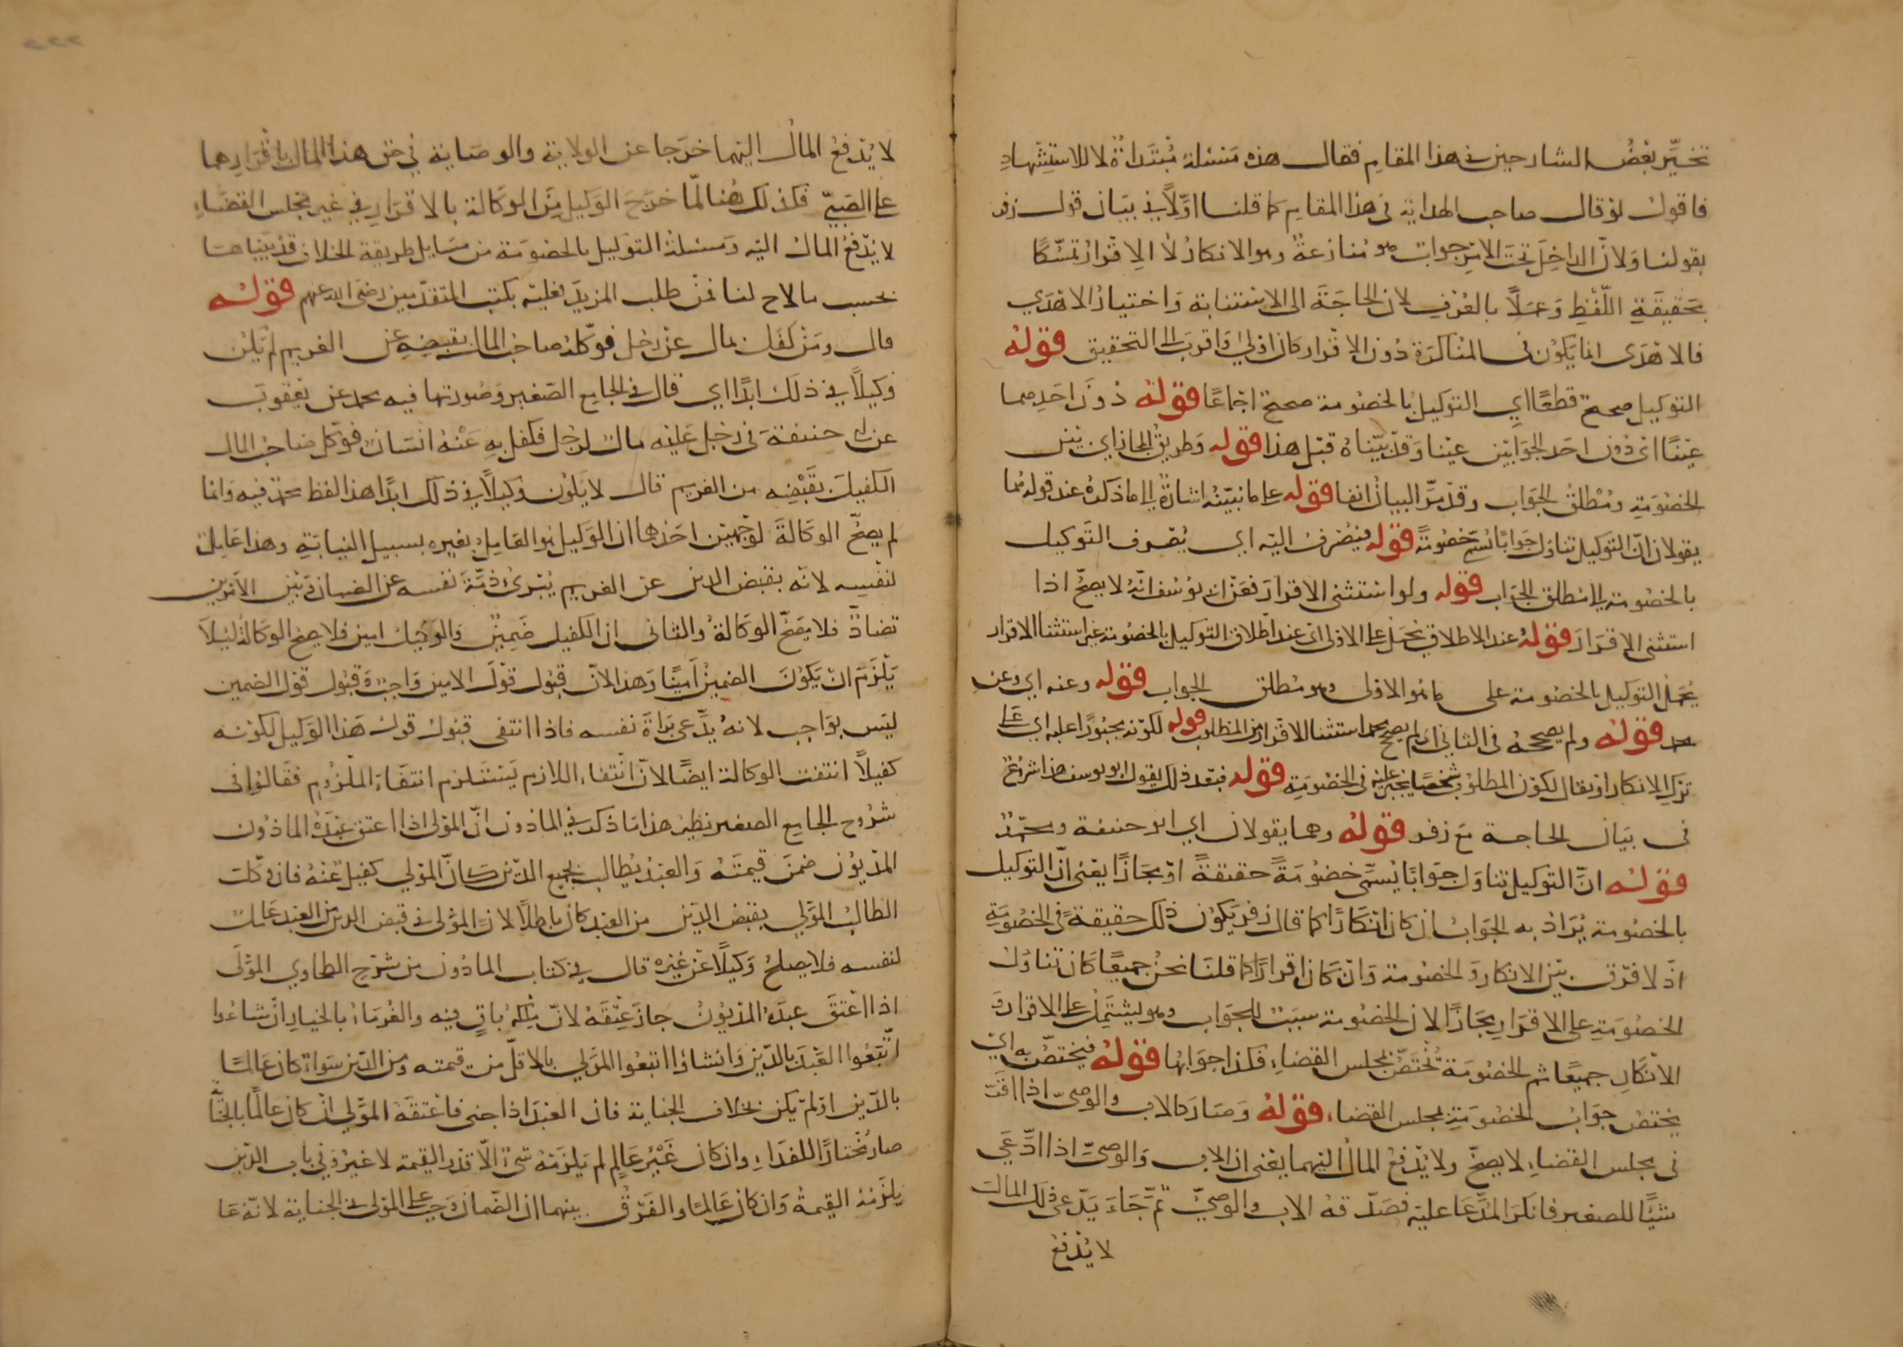 تحيّر بعض الشارحين في هذا المقام فقال هذه مسئلة مُبتدأة لا للاستشهاد
فاقول لو قال صاحب الهداية في هذا المقام كما قلنا اوّلاً في بيان قول زفر
بقولنا ولانّ الداخل تحت الامر جواب هو منازعة وهو الانكار لا الاقرار تمسّكا
بحقيقة اللّفظ وعملاً بالعُرف لان الحاجة الى الاستنابة واختيار الاهدى
فالاهدى انما يكون في المناكرة دون الاقرار كان اولى واقرب الى التحقيق قوله
التوكيل صحيح قطعًا اي التوكيل بالخصومة صحيح اجماعًا قوله دون احدهما
عينًا اي دون احد الجوابين عينا وقد بيّناه قبل هذا قوله وطريق المجاز اي بين
الخصومة ومُطلق الجواب وقد مرّ البيان انفا قوله على ما نبيّنه اشارة الى ما ذكره عند قوله هما
يقولان انّ التوكيل تناول جوابًا يسمّى خصومة قوله فيُصرف اليه اي يُصرف التوكيل
بالخصومة الى مطلق الجواب قوله ولو استثنى الاقرار فعن ابي يوسف انّه لا يصحّ اذا
استثنى الاقرار قوله عند الاطلاق يحمل على الاولى اي عند اطلاق التوكيل بالخصومة من غير استثنا الاقرار
يُحمل التوكيل بالخصومة على ما هو الاولى وهو مُطلق الجواب قوله وعنه اي وعن
محمد قوله ولم يصححه في الثاني اي لم يصحح محمد استثنا الاقرار من المطلوب قوله لكونه مجبورًا عليه اي على
ترك الانكار او يقال لكون المطلوب شخصا يجبر عليه في الخصومة قوله فبعد ذلك يقول ابو يوسف هذا شروع
في بيان الحاجة مع زفر قوله وهما يقولان اي ابو حنيفة ومحمد
قوله انّ التوكيل تناول جوابًا يُسمّى خصُومَةً حقيقةً او مجازًا يعني انّ التوكيل
بالخصُومة يُرادُ به الجواب ان كان انكارًا كما قال زفر يكون ذلك حقيقة في الخصُومةِ
اذ لا فرق بين الانكار والخصومة وان كان اقرارًا كما قلنا نحن جميعًا كان تناول
الخصومة على الاقرار مجازًا لان الخصومة سبب للجواب وهو يشتمل على الاقرار و
الانكار جميعًا ثم الخصومة تختصّ بمجلس القضاء فكذا جوابها قوله فيختصّ به اي
يختص جواب الخصومة بمجلس القضاء قوله وصار كالاب والوصيّ اذا اقرّ
في مجلس القضاء لا يصحّ ولا يُدفع المال اليهما يعني ان الاب والوصيّ اذا ادّعى
شيئًا للصغير فانكر المدّعا عليه فصدّقه الاب والوصيّ ثمّ جاء يدّعي ذلك المال
لا يُدفع
لا يُدفع المال اليهما خرجا عن الولاية والوصاية في حق هذا المال باقرارهما
على الصبيّ فكذلك هُنا لمّا خرج الوكيل من الوكالة بالاقرار في غير مجلس القضاء
لا يُدفع المال اليه ومسئلة التوكيل بالخصومة من مسايل طريقة الخلاف قد بيّناها
بحسب ما لاح لنا فمن طلب المزيد فعليه بكتب المتقدّمين رضي الله عنهم قوله
قال ومن كفل بمال عن رجل فوكّله صاحب المال بقبضه عن الغريم لم يكن
وكيلاً في ذلك ابدًا اي قال في الجامع الصغير وصورتها فيه محمد عن يعقوب
عن ابي حنيفة في رجل عليه مال لرجل فكفل به عنه انسان فوكّل صاحب المال
الكفيل بقبضه من الغريم قال لا يكون وكيلاً في ذلك ابدًا هذا لفظ محمّد فيه وانما
لم يصحّ الوكالة لوجهين احدهما ان الوكيل هو العامل لغيره بسبيل النيابة وهذا عامل
لنفسه لانه بقبض الدين عن الغريم يُبرئ ذمّة نفسه عن الضمان وبين الامرين
تضادّ فلا يصحّ الوكالة والثاني ان الكفيل ضمين والوكيل امين فلا يصح الوكالة ليلا
يلزم ان يكون الضمين امينًا وهذا لانّ قبول قول الامين واجب وقبول قول الضمين
ليس بواجب لانه يدّعى براة نفسه فاذا انتفى قبول قول هذا الوكيل لكونه
كفيلاً انتفت الوكالة ايضًا لانّ انتفاء اللازم يستلزم انتفاء الملزوم فقالوا في
شروح الجامع الصغير نظير هذا ما ذكر في الماذون انّ المولى اذا اعتق عبده الماذون
المديون ضمن قيمته والعبد يُطالب بجميع الدّين كانّ المولي كفيل عنه فان وكّل
الطالب المولي بقبض الدين من العبد كان باطلاً لان المولى في قبض الدين من العبد عامل
لنفسه فلا يصلح وكيلاً عن غيره قال في كتاب الماذون من شرح الطحاوي المولى
اذا اعتق عبده المديون جاز عتقه لانّ ملكه باقٍ فيه والغرماء بالخيار ان شاءوا
اتّبعوا العبد بالدّين وان شاؤا اتبعوا المولي بالاقلّ من قيمته ومن الدين سواء كان عالمًا
بالدّين او لم يكن بخلاف الجناية فان العبد اذا جنى فاعتقه المولي ان كان عالمًا بالجنا
صار مختارًا للفداء وان كان غير عالم لم يلزمه شئ الّا قدر القيمة لا غير وفي باب الدّين
يلزمه القيمة وان كان عالمًا والفرق بينهما ان الضمان وجب على المولى في الجناية لانّه عا